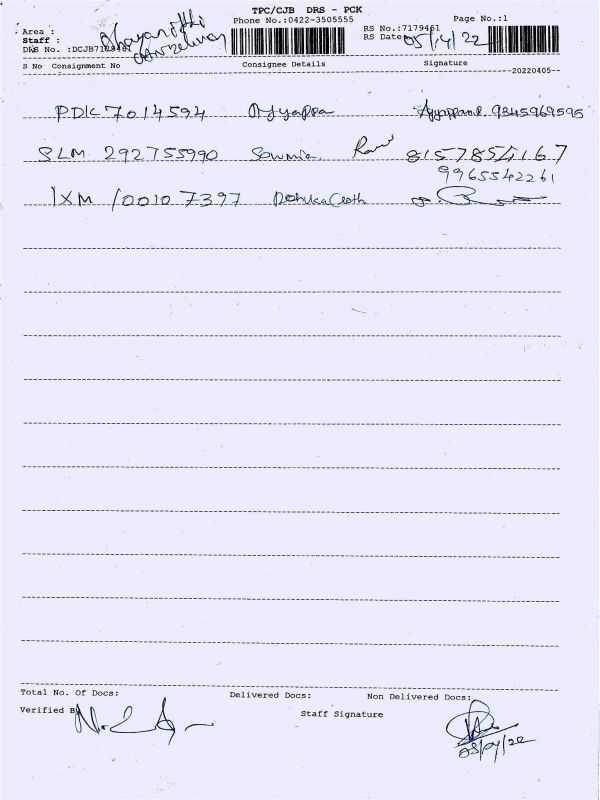 TPC/CJB DRS - PCK
Phone No.:0422-3505555 Page No.:1
Area :
RS No.:7179461
Staff :
RS Date 05/4/22
DRS No. :DCJB7179461
S No Consignment No Consignee Details Signature
20220405
PDK 7014594 Ayyappa Ayyappan.P. 9345969595
SLM 292755990 Sowmia 8157854167
9965542261
IXM 10010 7397
Total No. Of Docs: Delivered Docs: Non Delivered Docs:
Verified By
Staff Signature
05/04/22